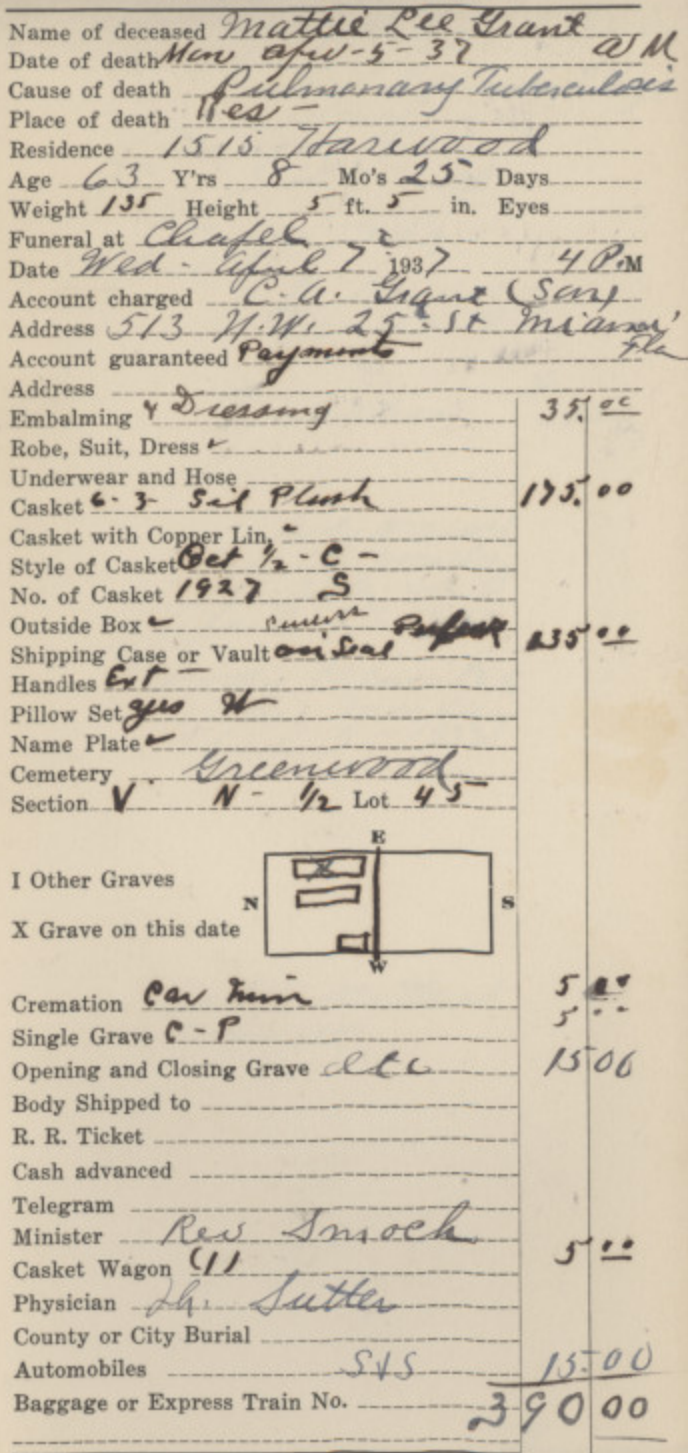 Name of deceased Mattie Lee Grant
Date of death Mon Apr-5-37 A M
Cause of death Pulmonary Tuberculosis
Place of death Res -
Residence 1515 Harwood
Age 63 Y'rs 8 Mo's 25 Days
Weight 135 Height 5 ft. 5 in. Eyes
Funeral at Chapel
Date Wed - April 7 1937 4 P.M
Account charged C. A. Grant (Son)
Address 513 N.W. 25 St Miami Fla
Account guaranteed Payments
Address
Embalming & Dressing 35.00
Robe, Suit, Dress
Underwear and Hose
Casket 6-3 Sil Plush 175.00
Casket with Copper Lin.
Style of Casket Oct 1/2 - C -
No. of Casket 1927 S
Outside Box
Shipping Case or Vault Seal 135 00
Handles Ext -
Pillow Set yes
Name Plate
Cemetery Greenwood
Section V N - 1/2 Lot 45
E
I Other Graves
N S
X Grave on this date
W
Cremation 5 00
Single Grave C - P 5 00
Opening and Closing Grave 15 00
Body Shipped to
R. R. Ticket
Cash advanced
Telegram
Minister Rev Smock
Casket Wagon (1) 5 00
Physician Dr. Sutter
County or City Burial
Automobiles SVS 15.00
Baggage or Express Train No. 390 00